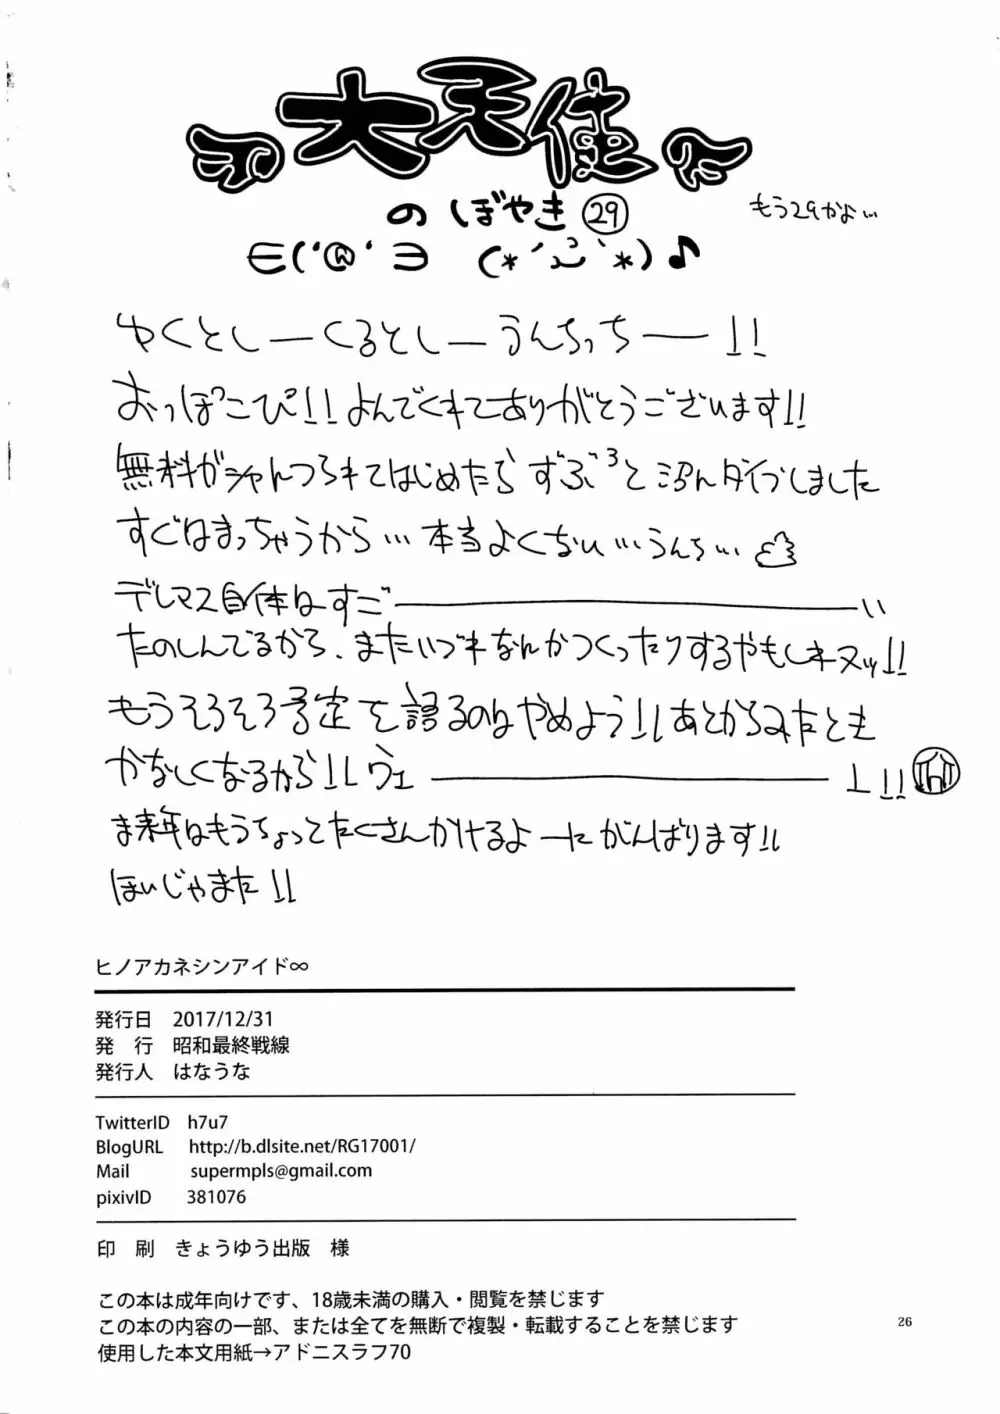 大天使
のぼやき㉙
もう29かよ…
∈('@'∋ (*´ω`*)♪
ゆくとしーくるとしーうんちっちー!!
おっぽこぴ!!よんでくれてありがとうございます!!
無料ガシャんつられてはじめたらずぶ³と沼んダイブしました
すぐはまっちゃうから…本当よくない…うんち…
デレマス自体はすごーい
たのしんでるから、またいづれなんかつくったりするやもしれヌッ!!
もうそろそろ予定を語るのはやめよう!!あとからみたとき
かなしくなるから!!ヴェー!!
ま来年はもうちょってたくさんかけるよーにがんばります!!
ほいじゃまた!!
ヒノアカネシンアイド∞
発行日 2017/12/31
発 行 昭和最終戦線
発行人 はなうな
TwitterID h7u7
BlogURL http://b.dlsite.net/RG17001/
Mail supermpls@gmail.com
pixivID 381076
印 刷 きょうゆう出版 様
この本は成年向けです、18歳未満の購入・閲覧を禁じます
この本の内容の一部、または全てを無断で複製・転載することを禁じます
使用した本文用紙→アドニスラフ70
26